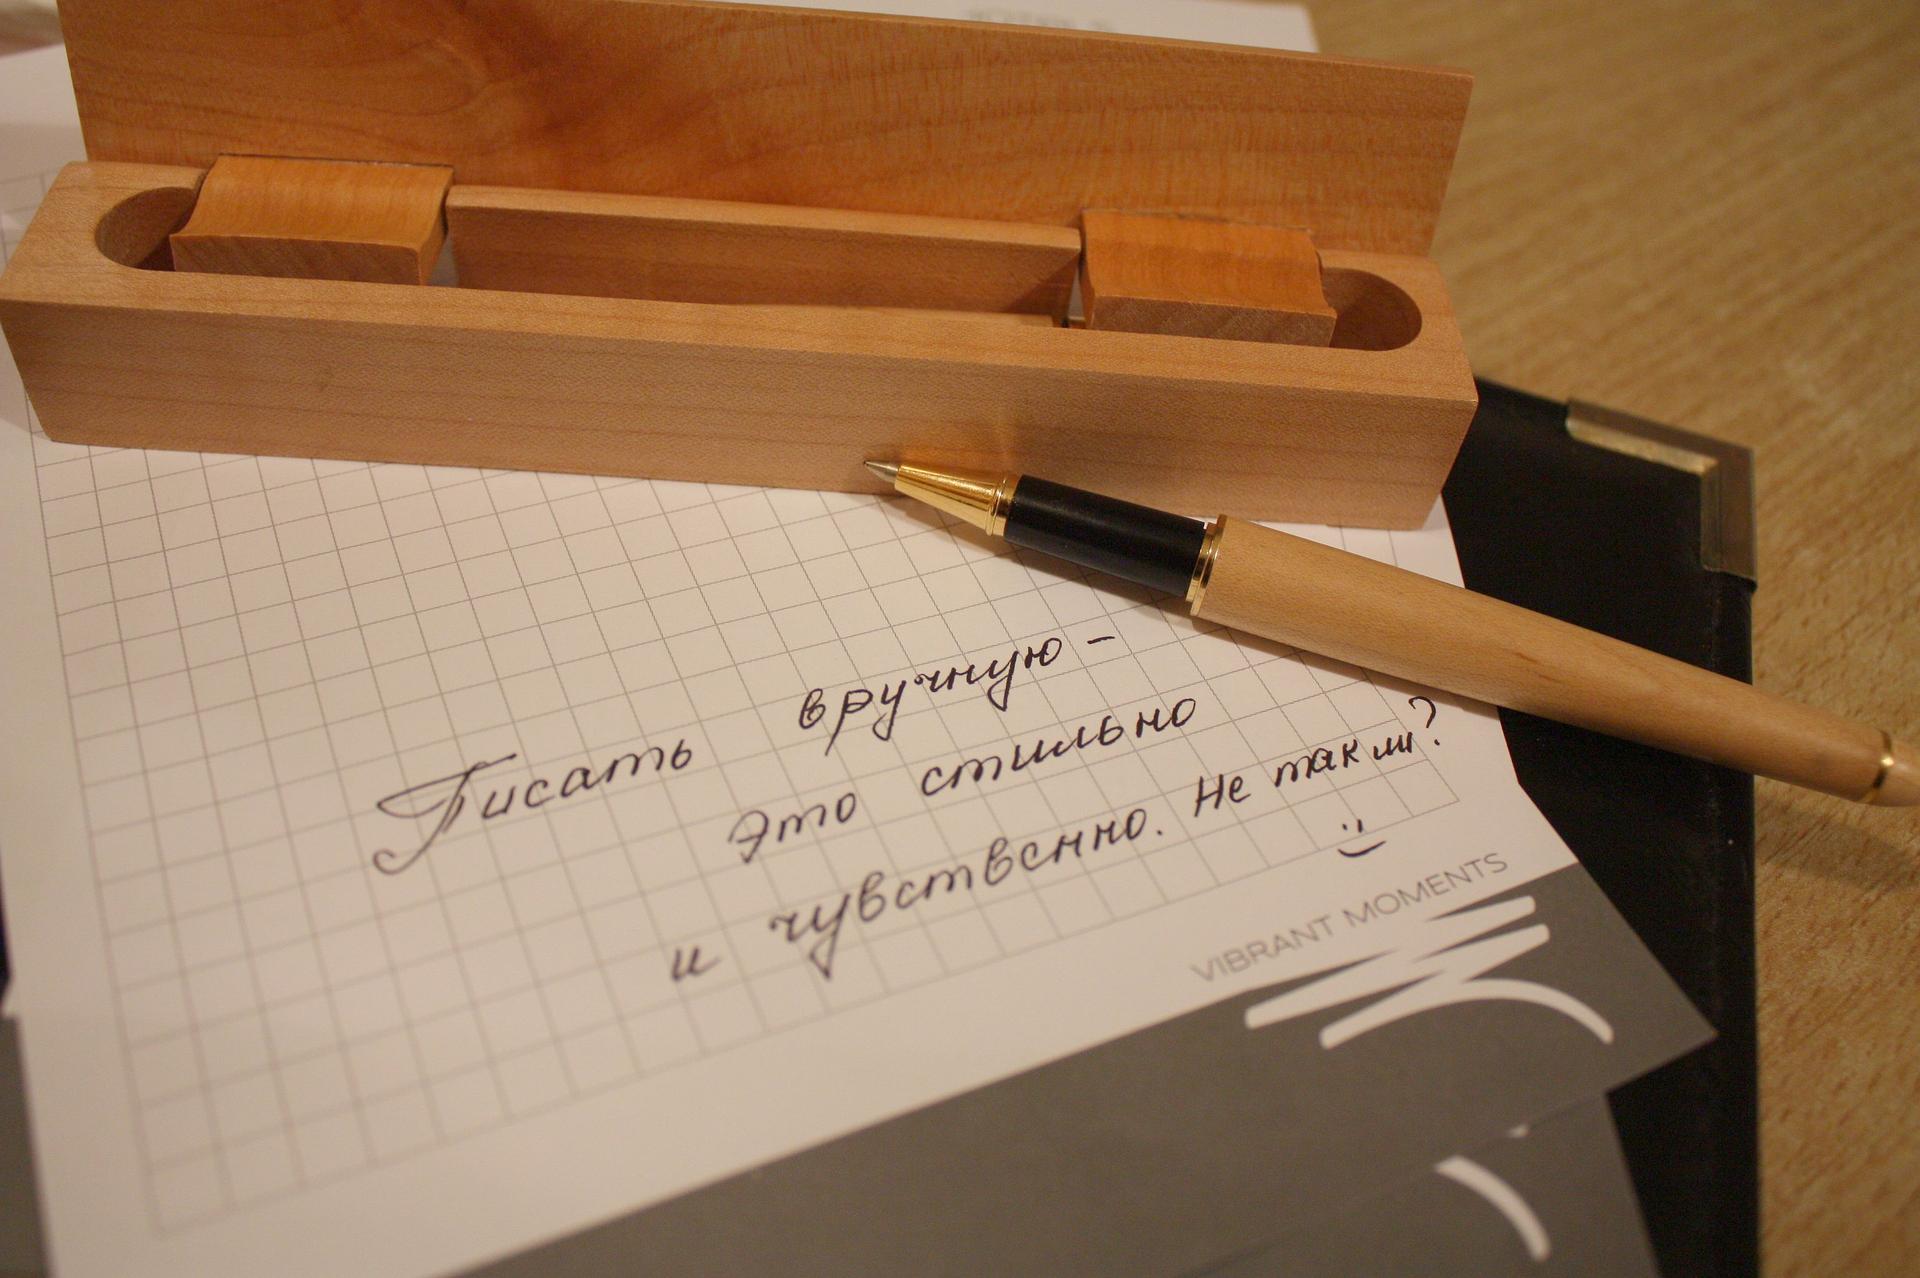 Писать вручную -
Это стильно
и чувственно. Не так ли?
:)
VIBRANT MOMENTS